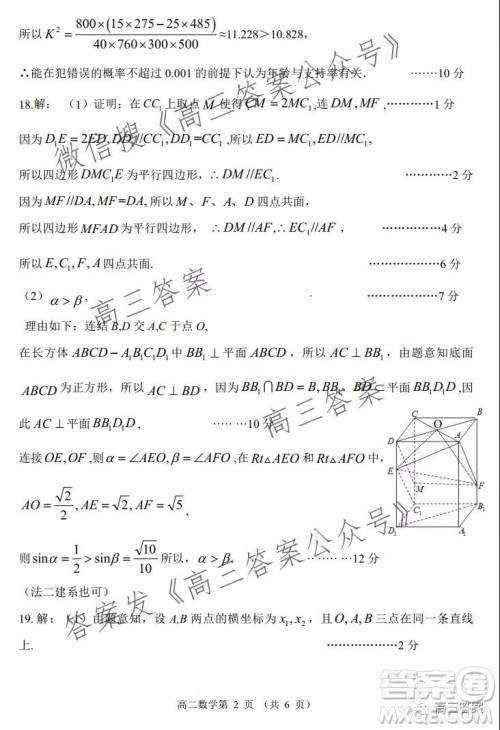 所以 K² = 800×(15×275−25×485) / 40×760×300×500 ≈11.228＞10.828，
∴能在犯错误的概率不超过 0.001 的前提下认为年龄与支持率有关. ……10 分
18.解：（1）证明：在 CC₁ 上取点 M 使得 CM = 2MC₁,连 DM,MF , …………1 分
因为 D₁E = 2ED, DD₁//CC₁, DD₁=CC₁, 所以 ED = MC₁, ED//MC₁,
所以四边形 DMC₁E 为平行四边形，∴DM // EC₁. …………2 分
因为 MF // DA, MF=DA,所以 M、F、A、D 四点共面，
所以四边形 MFAD 为平行四边形，∴DM//AF,∴EC₁//AF , …………4 分
所以 E,C₁,F,A 四点共面. …………6 分
（2）α＞β， …………7 分
理由如下：连结 B,D 交 A,C 于点 O,
在长方体 ABCD−A₁B₁C₁D₁ 中 BB₁ ⊥ 平面 ABCD，所以 AC ⊥ BB₁，由题意知底面
ABCD 为正方形，所以 AC ⊥ BD，因为 BB₁∩BD = B, BB₁、BD⊂平面 BB₁D₁D ,因
此 AC ⊥平面 BB₁D₁D, ……10 分
连接 OE,OF ,则 α=∠AEO, β=∠AFO, 在 Rt△AEO 和 Rt△AFO 中，
AO = √2/2, AE = √2, AF = √5 ,
则 sinα = 1/2 > sinβ = √10/10 所以，α＞β . ……12 分
（法二建系也可）
C
B
O
D
A
E
M
F
C₁
B₁
D₁
A₁
19.解：（1）由题意知，设 A,B 两点的横坐标为 x₁,x₂ ，且 O, A, B 三点在同一条直线
上. ……………2 分
高二数学第 2 页 （共 6 页）
微信搜《高三答案公众号》
高三答案
高三答案
答案发《高三答案公众号》
高三答案
答案圈
MXQE.COM